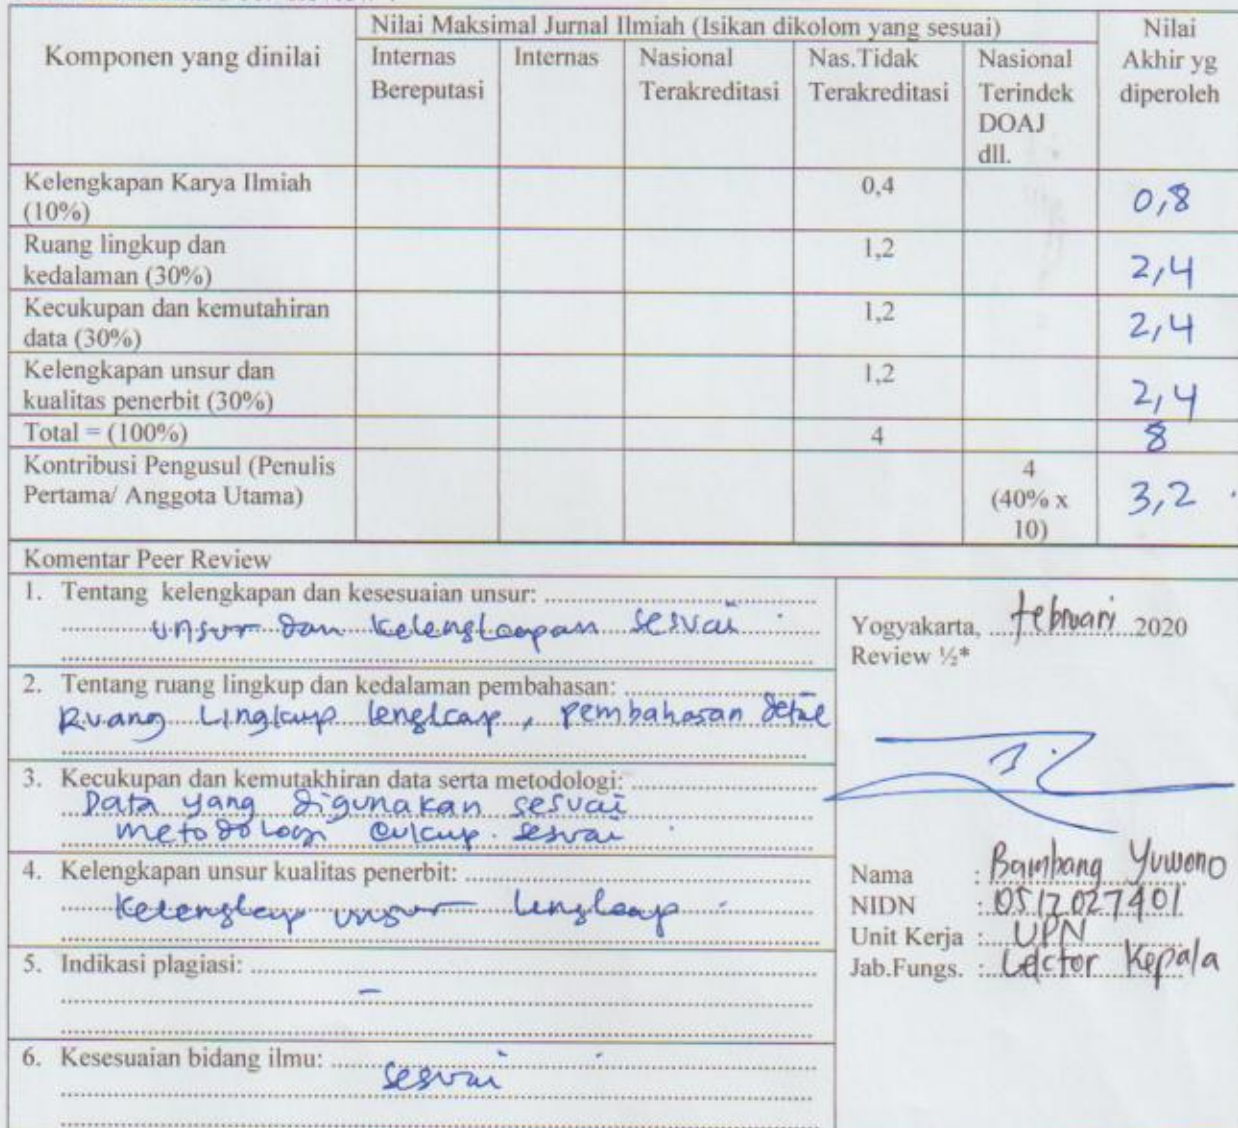 Nilai Maksimal Jurnal Ilmiah (Isikan dikolom yang sesuai)
Komponen yang dinilai
Internas Bereputasi
Internas
Nasional Terakreditasi
Nas.Tidak Terakreditasi
Nasional Terindek DOAJ dll.
Nilai Akhir yg diperoleh
Kelengkapan Karya Ilmiah
(10%)
0,4
0,8
Ruang lingkup dan
kedalaman (30%)
1,2
2,4
Kecukupan dan kemutahiran
data (30%)
1,2
2,4
Kelengkapan unsur dan
kualitas penerbit (30%)
1,2
2,4
Total = (100%)
4
8
Kontribusi Pengusul (Penulis
Pertama/ Anggota Utama)
4
(40% x
10)
3,2
Komentar Peer Review
1. Tentang kelengkapan dan kesesuaian unsur:
unsur dan kelengkapan sesuai
2. Tentang ruang lingkup dan kedalaman pembahasan:
Ruang Lingkup lengkap, pembahasan detail
3. Kecukupan dan kemutakhiran data serta metodologi:
Data yang digunakan sesuai
metodologi cukup sesuai
4. Kelengkapan unsur kualitas penerbit:
unsur lengkap
5. Indikasi plagiasi:
-
6. Kesesuaian bidang ilmu:
sesuai
Yogyakarta, februari 2020
Review ½*
Nama : Bambang Yuwono
NIDN : 0512027401
Unit Kerja : UPN
Jab.Fungs. : Lector Kepala